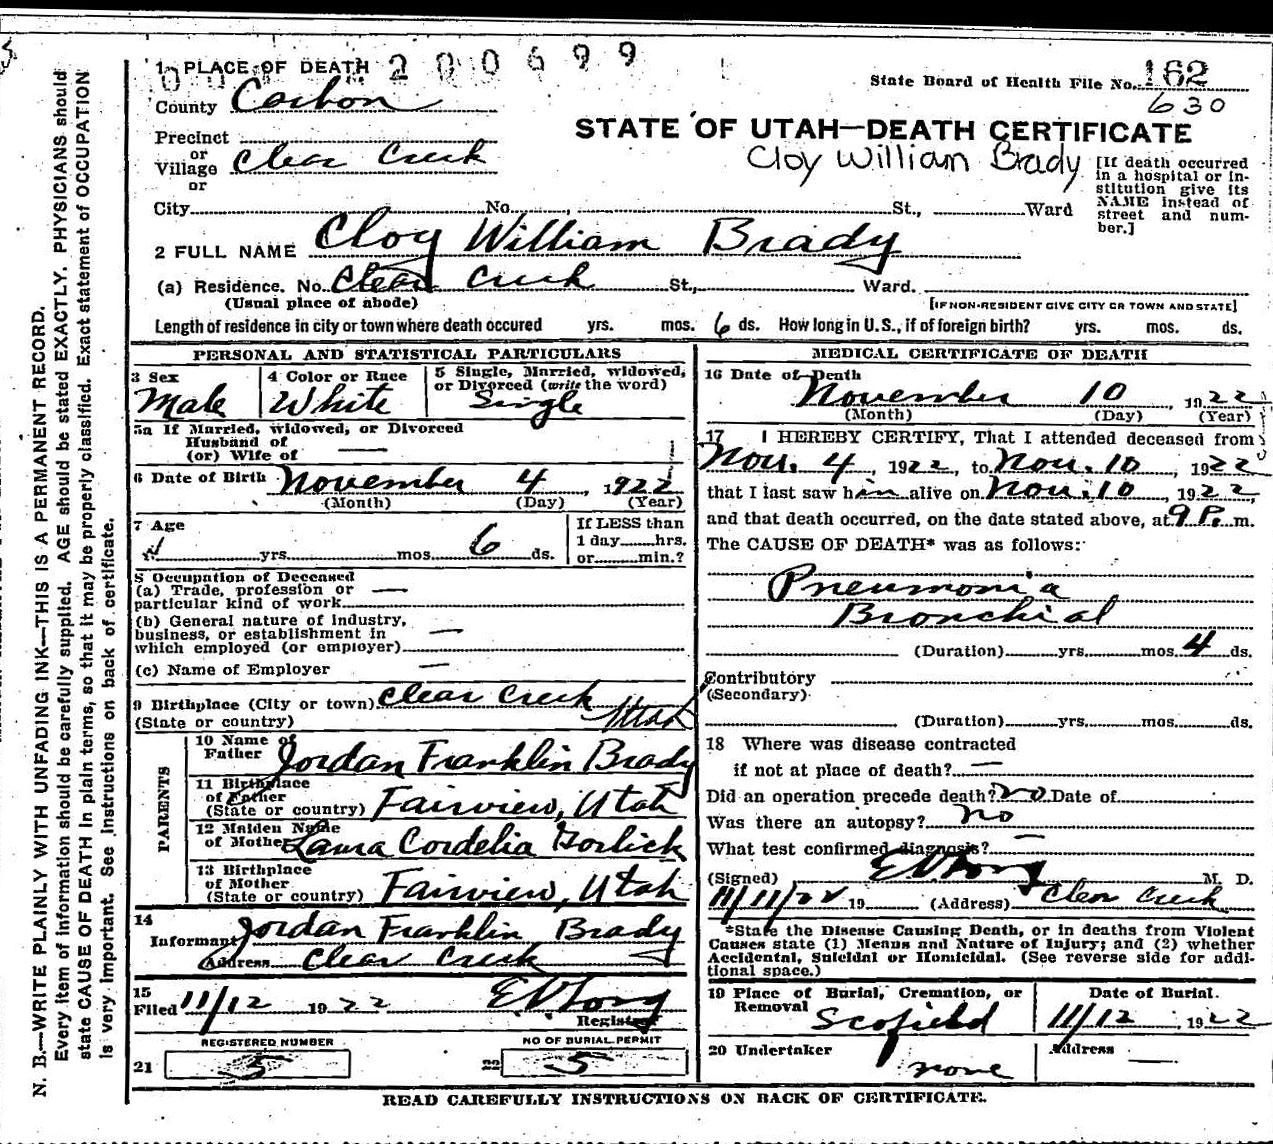 0 0 200699
1 PLACE OF DEATH
State Board of Health File No. 162
630
County Carbon
STATE OF UTAH—DEATH CERTIFICATE
Cloy William Brady
Precinct
or
Village Clear Creek
or
[If death occurred in a hospital or institution give its NAME instead of street and number.]
City No. , St., Ward
2 FULL NAME Cloy William Brady
(a) Residence. No. Clear Creek St., Ward.
(Usual place of abode) [IF NON-RESIDENT GIVE CITY OR TOWN AND STATE]
Length of residence in city or town where death occured yrs. mos. 6 ds. How long in U.S., if of foreign birth? yrs. mos. ds.
PERSONAL AND STATISTICAL PARTICULARS
3 Sex
Male
4 Color or Race
White
5 Single, Married, widowed, or Divorced (write the word)
Single
5a If Married, widowed, or Divorced
Husband of
(or) Wife of —
6 Date of Birth November 4, 1922
(Month) (Day) (Year)
7 Age
yrs. mos. 6 ds.
If LESS than
1 day hrs.
or min.?
8 Occupation of Deceased
(a) Trade, profession or —
particular kind of work
(b) General nature of Industry,
business, or establishment in —
which employed (or employer)
(c) Name of Employer —
9 Birthplace (City or town) Clear Creek
(State or country) Utah
PARENTS
10 Name of
Father Jordan Franklin Brady
11 Birthplace
of Father
(State or country) Fairview, Utah
12 Maiden Name
of Mother Laura Cordelia Gorlick
13 Birthplace
of Mother
(State or country) Fairview, Utah
14
Informant Jordan Franklin Brady
Address Clear Creek
15
Filed 11/12 1922 E.V. Long
Registrar
REGISTERED NUMBER
21 5
NO OF BURIAL PERMIT
22 5
MEDICAL CERTIFICATE OF DEATH
16 Date of Death
November 10, 1922
(Month) (Day) (Year)
17 I HEREBY CERTIFY, That I attended deceased from
Nov. 4, 1922, to Nov. 10, 1922
that I last saw him alive on Nov. 10, 1922,
and that death occurred, on the date stated above, at 9 P. m.
The CAUSE OF DEATH* was as follows:
Pneumonia
Bronchial
(Duration) yrs. mos. 4 ds.
Contributory
(Secondary)
(Duration) yrs. mos. ds.
18 Where was disease contracted
if not at place of death? —
Did an operation precede death? no Date of
Was there an autopsy? no
What test confirmed diagnosis? —
(Signed) E V Long M. D.
11/11/22 19 (Address) Clear Creek
*State the Disease Causing Death, or in deaths from Violent
Causes state (1) Menus and Nature of Injury; and (2) whether
Accidental, Suicidal or Homicidal. (See reverse side for addi-
tional space.)
19 Place of Burial, Cremation, or
Removal Scofield
Date of Burial.
11/12, 1922
20 Undertaker
none
Address —
READ CAREFULLY INSTRUCTIONS ON BACK OF CERTIFICATE.
N. B.—WRITE PLAINLY WITH UNFADING INK—THIS IS A PERMANENT RECORD.
Every item of information should be carefully supplied. AGE should be stated EXACTLY. PHYSICIANS should
state CAUSE OF DEATH in plain terms, so that it may be properly classified. Exact statement of OCCUPATION
is very important. See instructions on back of certificate.